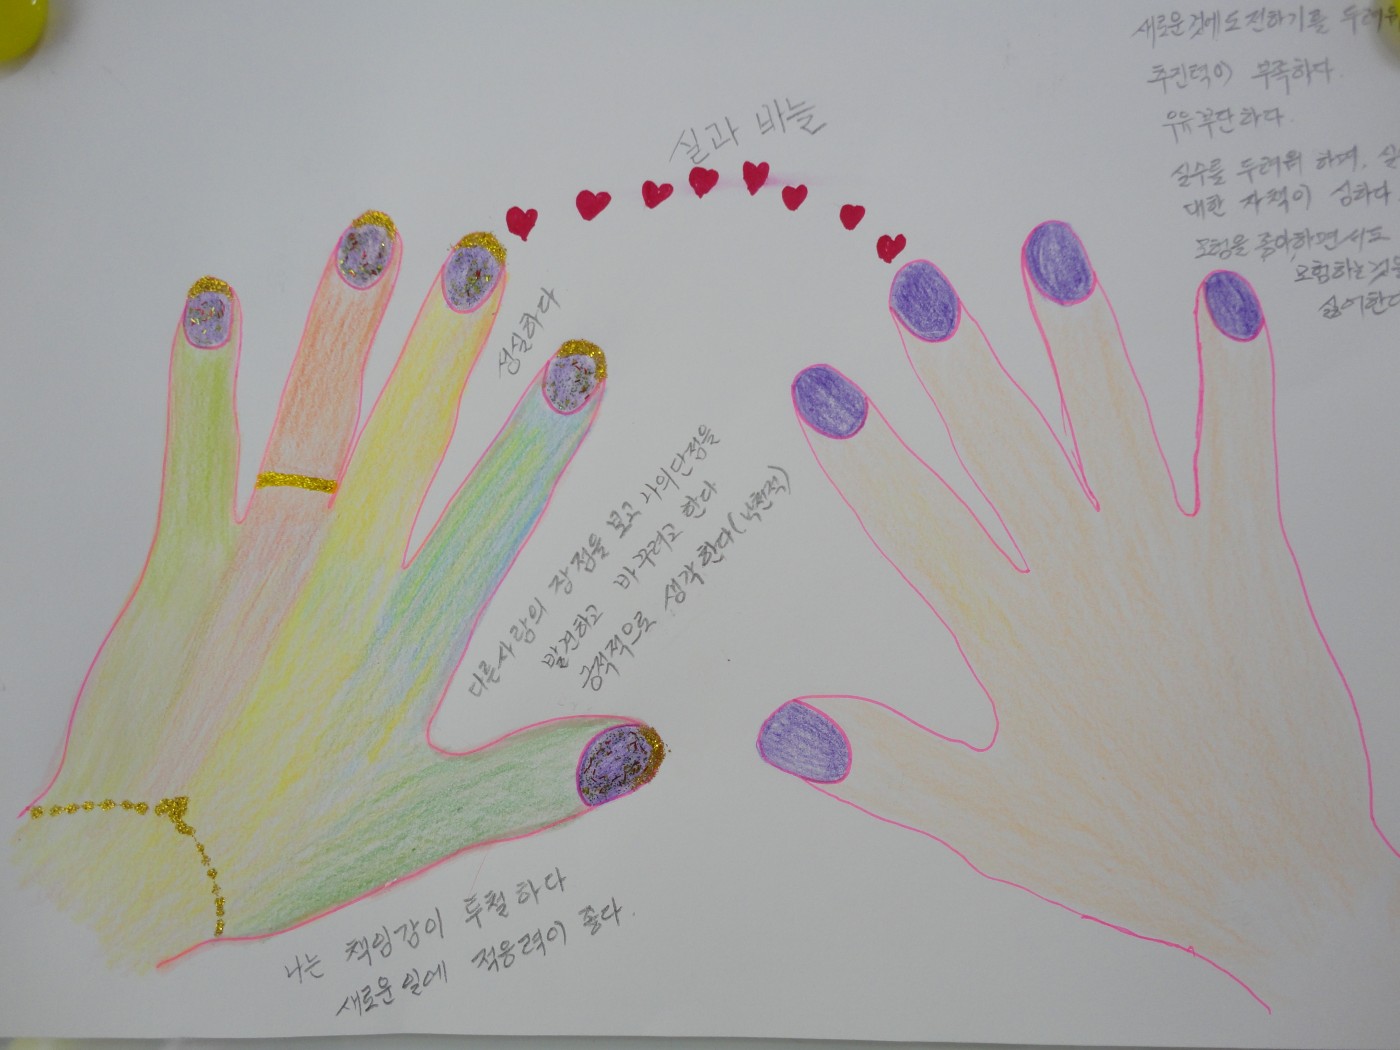 실과 바늘
성실하다
다른사람의 장점을 보고 나의단점을
발견하고 바꾸려고 한다
긍적적으로 생각한다(낙천적)
나는 책임감이 투철하다
새로운일에 적응력이 좋다.
새로운것에도전하기를 두려워
추진력이 부족하다.
우유부단하다.
실수를 두려워 하며,
대한 자책이 심하다
모험을 좋아하면서도
모험하는것을
싫어한다